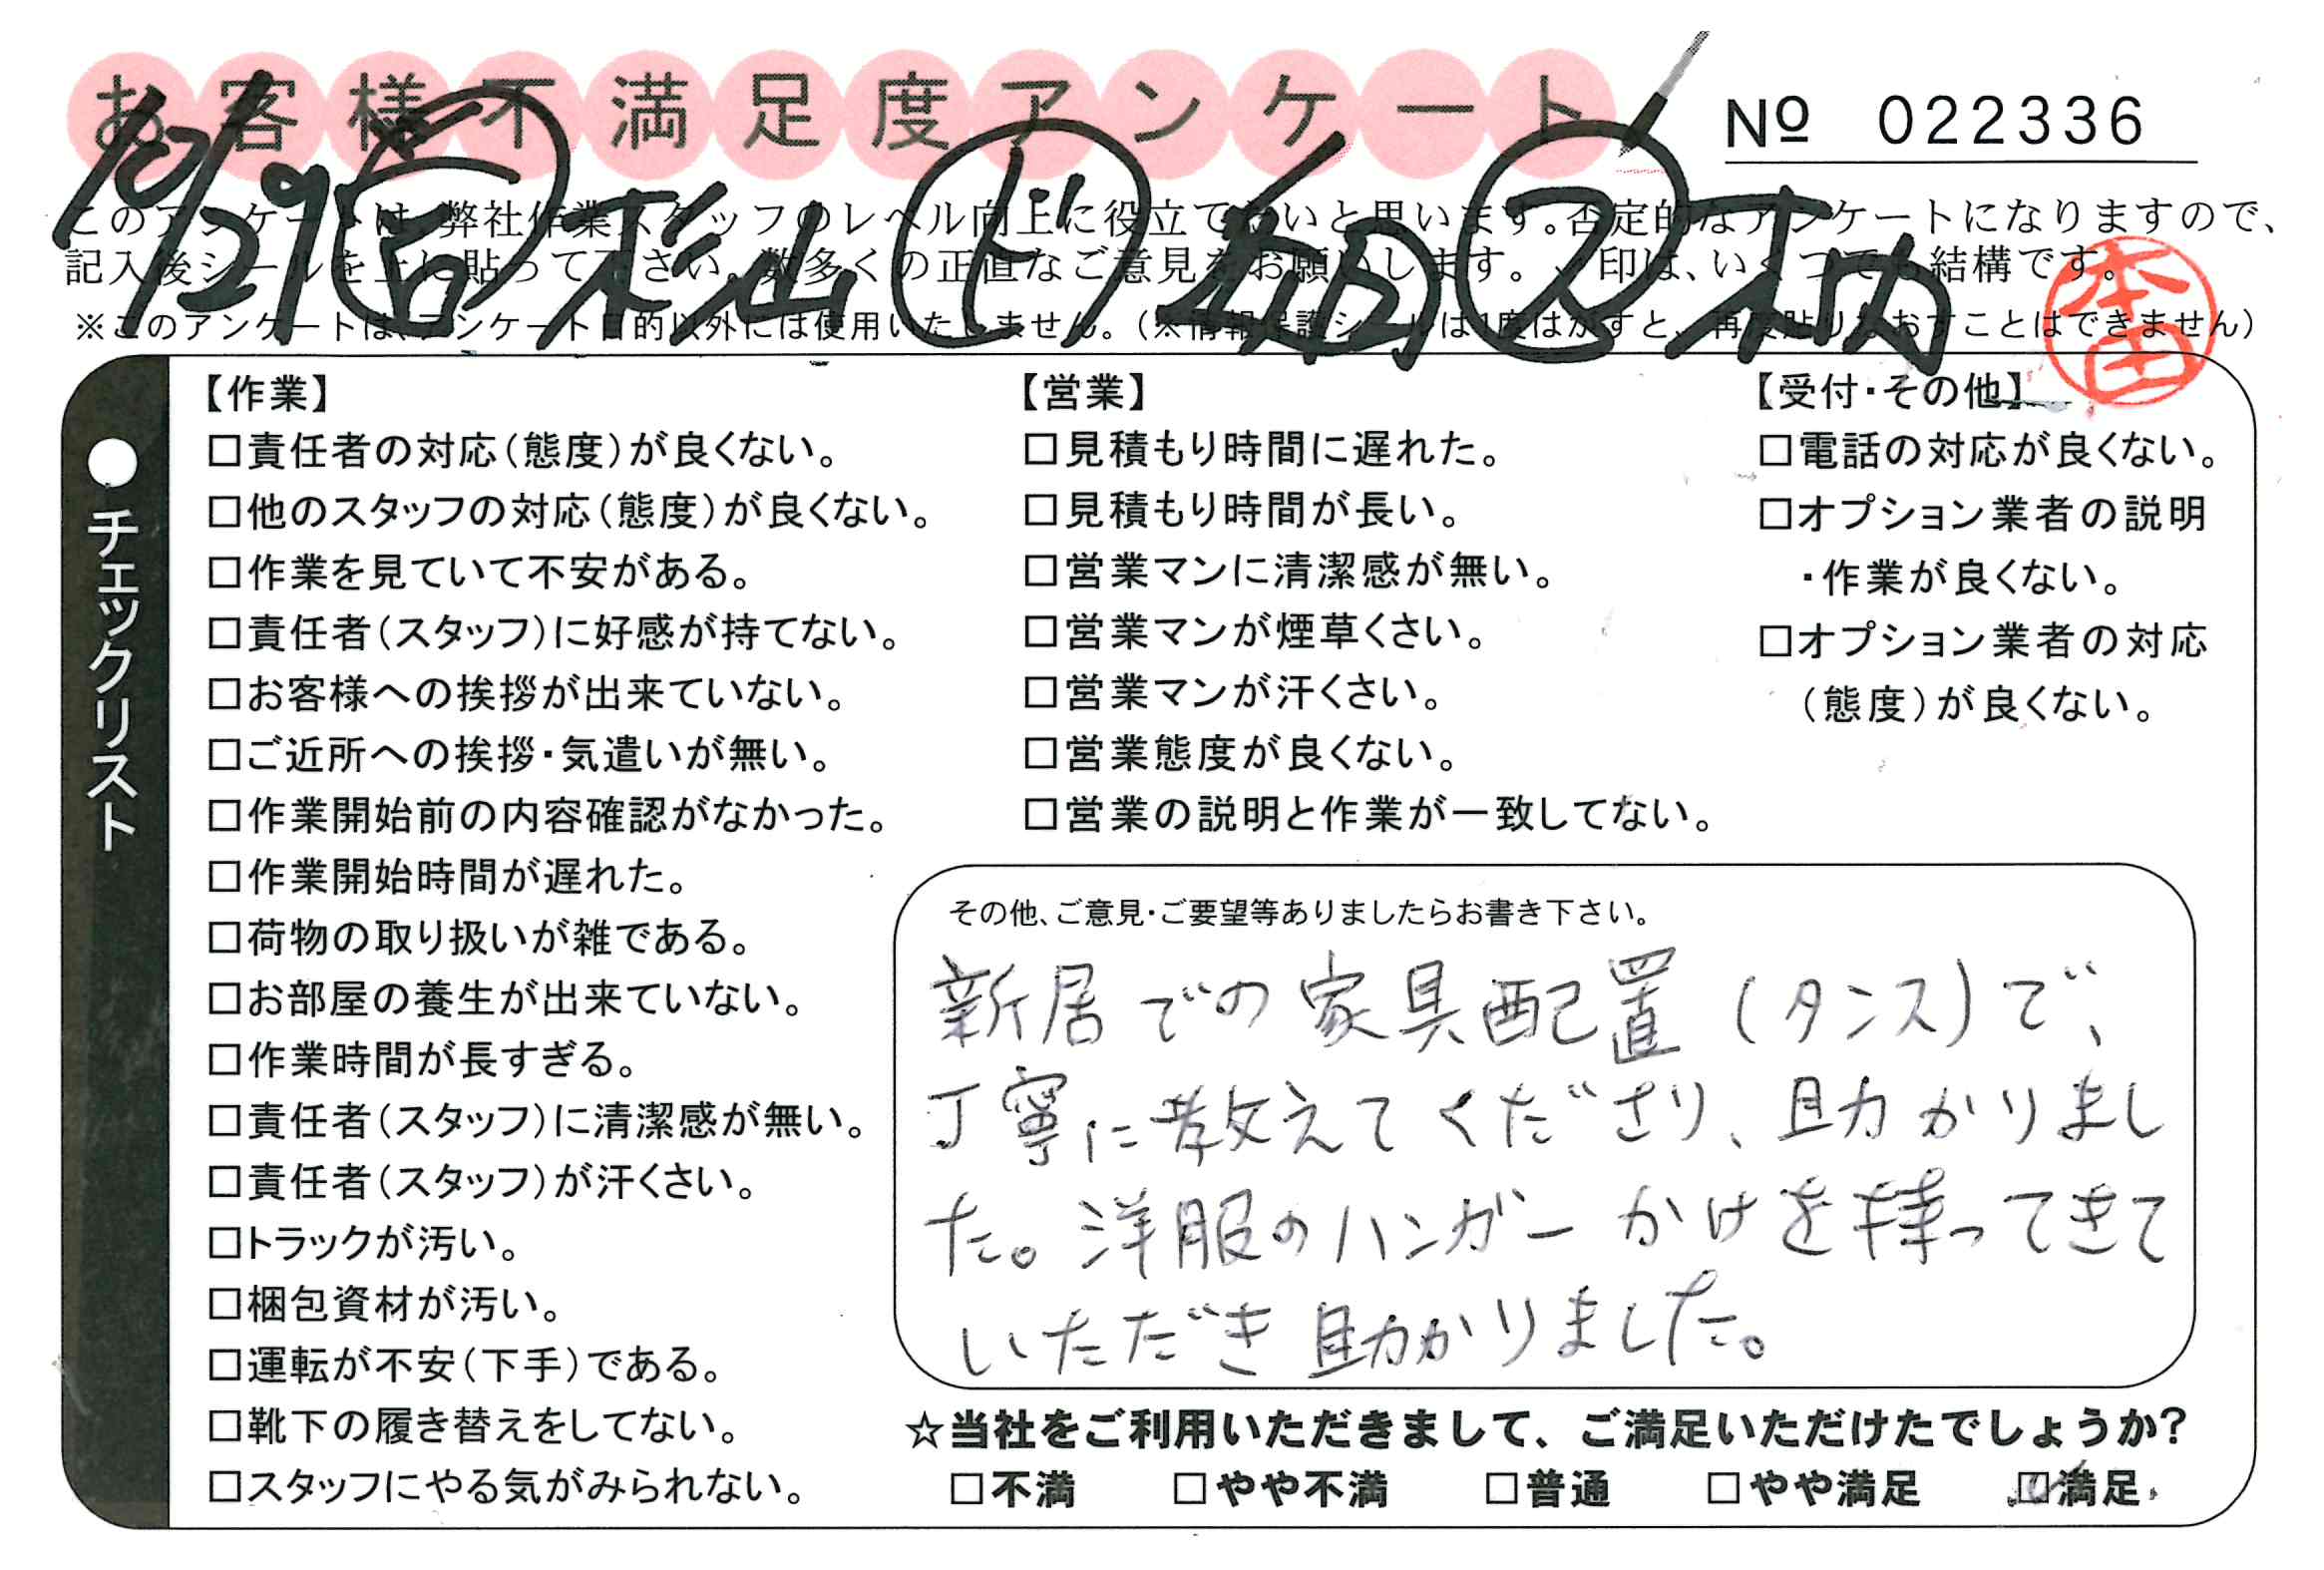 お客様不満足度アンケート
№ 022336
10/29 杉山 ド ス
このアンケートは、弊社作業スタッフのレベル向上に役立てたいと思います。否定的なアンケートになりますので、
記入後シールを上に貼って下さい。数多くの正直なご意見をお願いします。✓印は、いくつでも結構です。
※このアンケートは、アンケート目的以外には使用いたしません。（※情報保護シールは1度はがすと、再度貼りなおすことはできません）
本田
●チェックリスト
【作業】
□責任者の対応（態度）が良くない。
□他のスタッフの対応（態度）が良くない。
□作業を見ていて不安がある。
□責任者（スタッフ）に好感が持てない。
□お客様への挨拶が出来ていない。
□ご近所への挨拶・気遣いが無い。
□作業開始前の内容確認がなかった。
□作業開始時間が遅れた。
□荷物の取り扱いが雑である。
□お部屋の養生が出来ていない。
□作業時間が長すぎる。
□責任者（スタッフ）に清潔感が無い。
□責任者（スタッフ）が汗くさい。
□トラックが汚い。
□梱包資材が汚い。
□運転が不安（下手）である。
□靴下の履き替えをしてない。
□スタッフにやる気がみられない。
【営業】
□見積もり時間に遅れた。
□見積もり時間が長い。
□営業マンに清潔感が無い。
□営業マンが煙草くさい。
□営業マンが汗くさい。
□営業態度が良くない。
□営業の説明と作業が一致してない。
【受付・その他】
□電話の対応が良くない。
□オプション業者の説明
・作業が良くない。
□オプション業者の対応
（態度）が良くない。
その他、ご意見・ご要望等ありましたらお書き下さい。
新居での家具配置（タンス）で、
丁寧に教えてくださり、助かりまし
た。洋服のハンガーかけを持ってきて
いただき助かりました。
☆当社をご利用いただきまして、ご満足いただけたでしょうか?
□不満 □やや不満 □普通 □やや満足 ☑満足